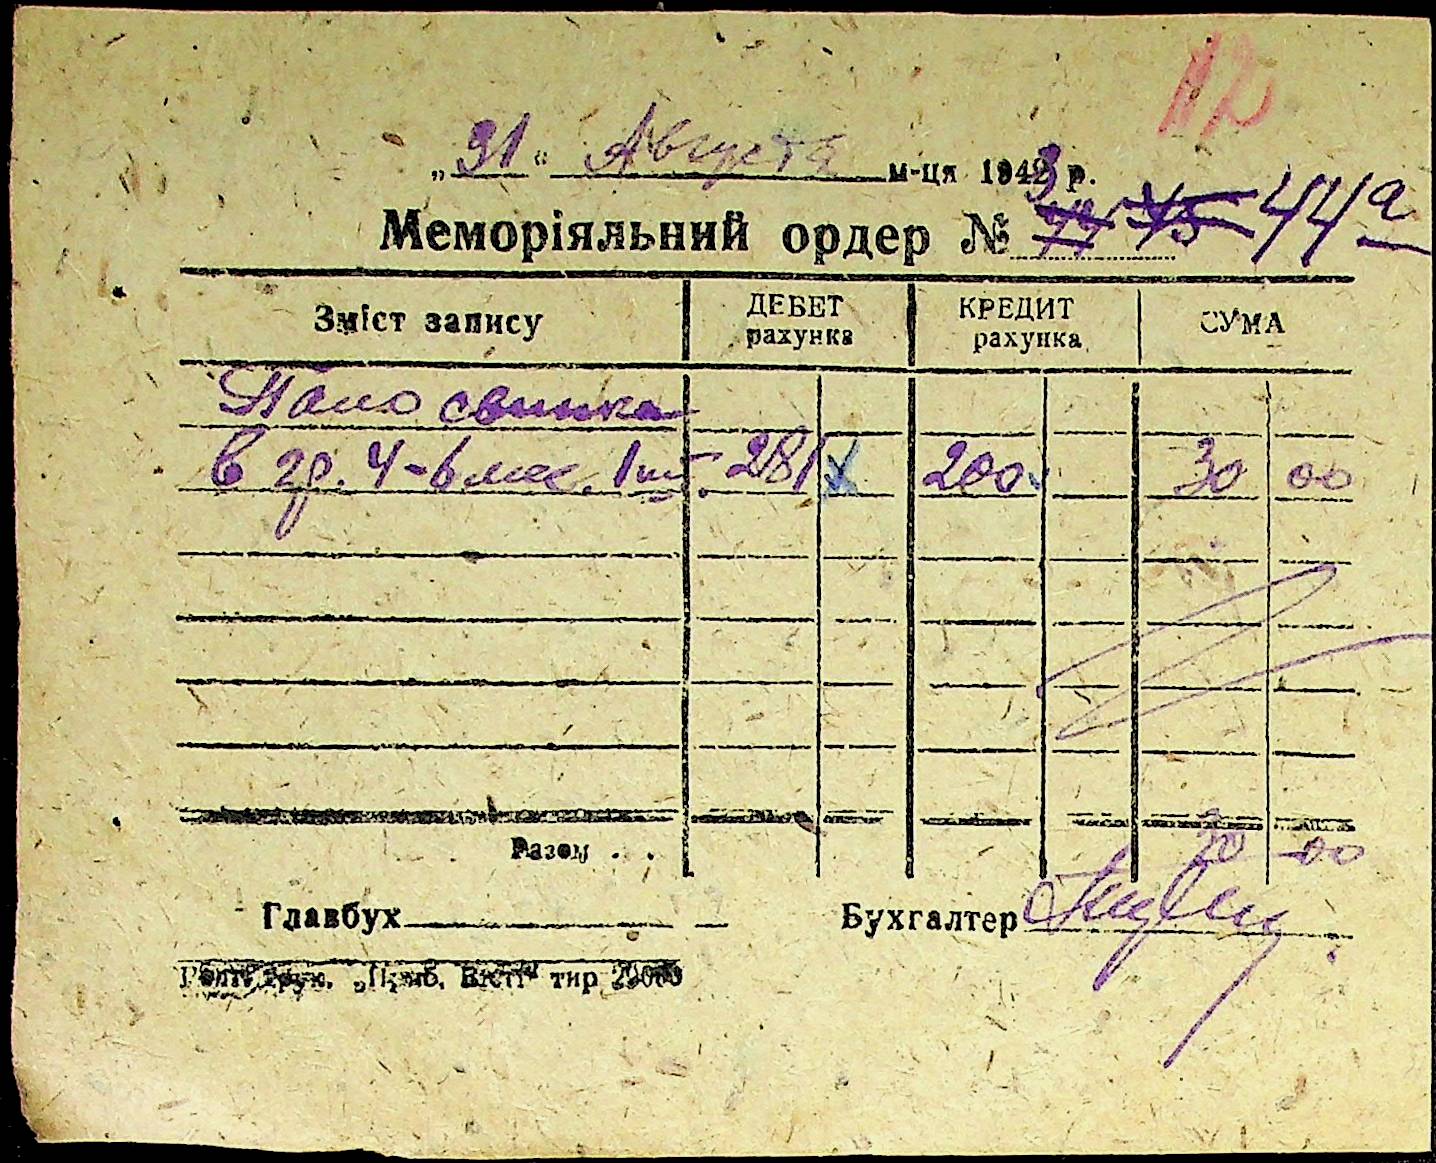 12
„31“ Августа м-ця 1943 р.
Меморіяльний ордер № 44а
Зміст запису ДЕБЕТ рахунка КРЕДИТ рахунка СУМА
Пало свинка
в гр. 4-6 мес. 1 шт. 281 200 30 00
Разом . . 30 00
Главбух Бухгалтер
трук. Вісті“ тир